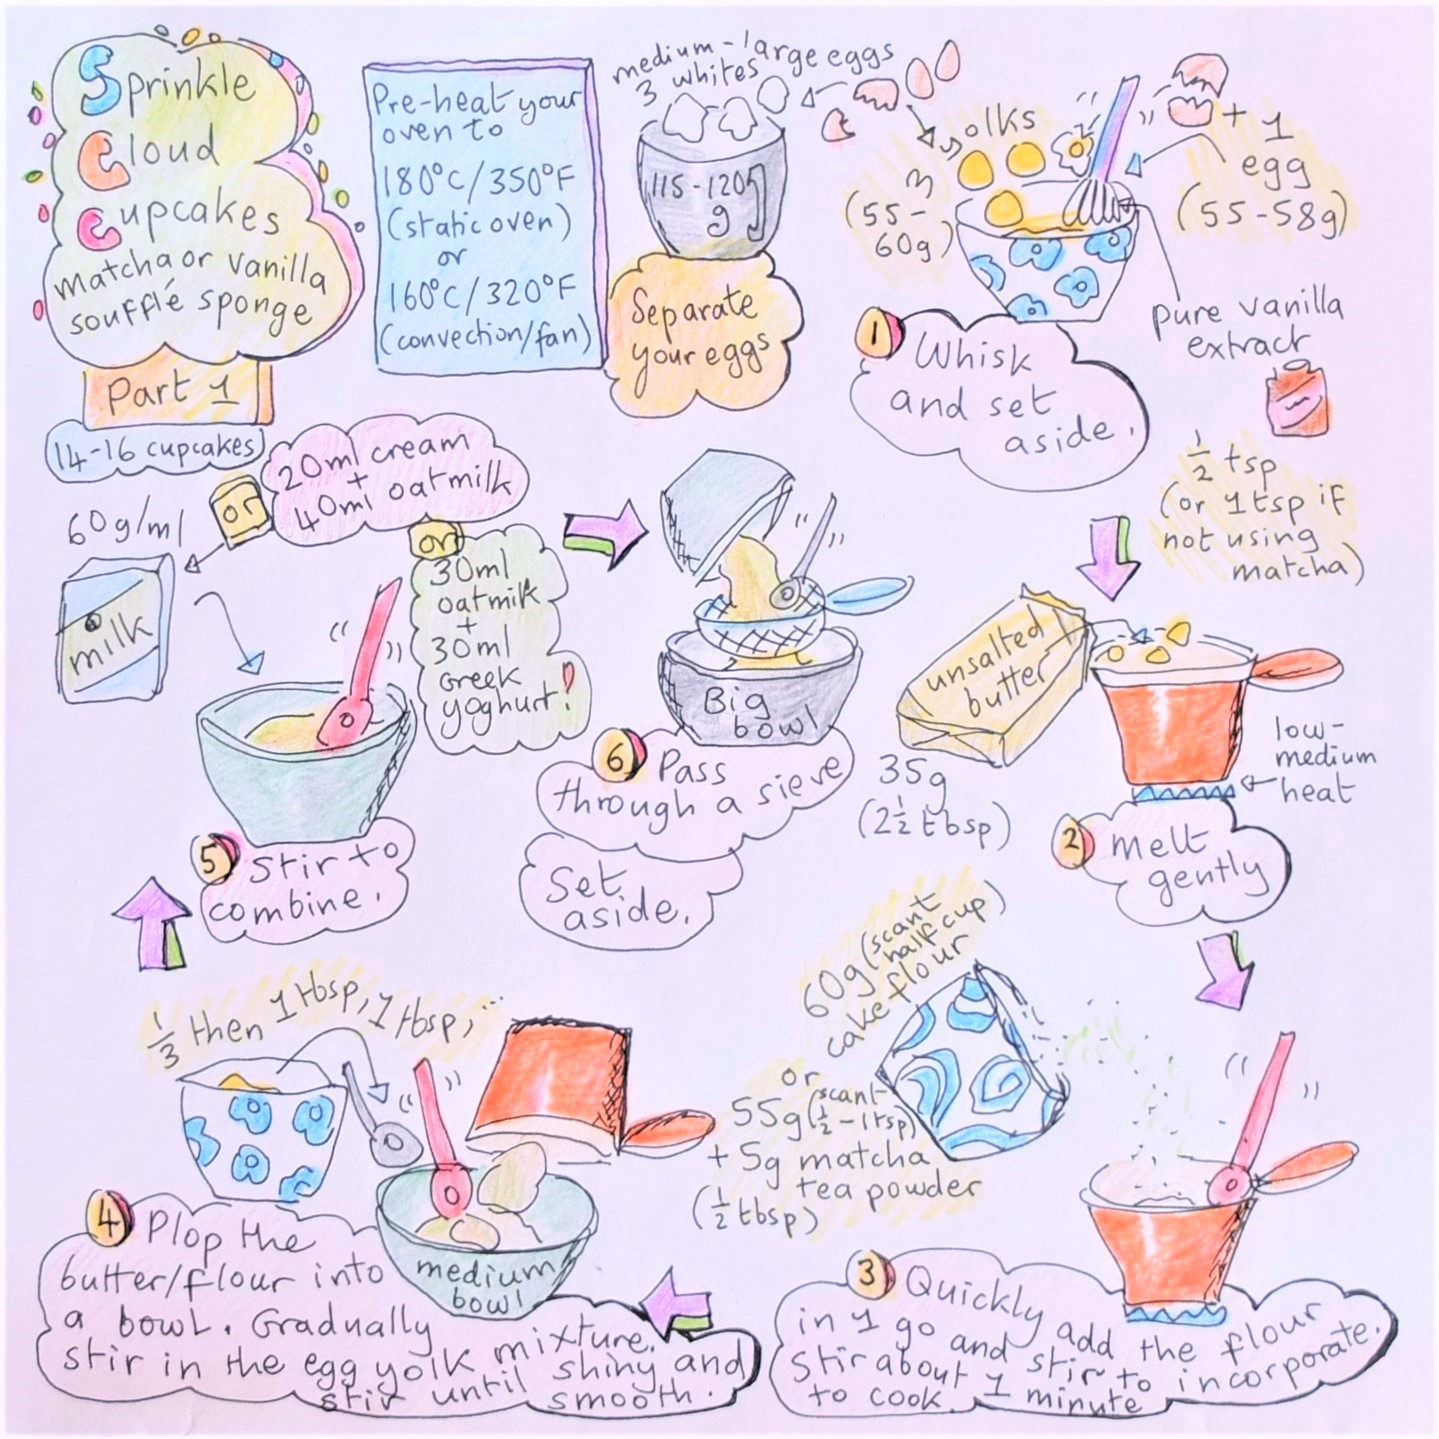 Sprinkle
Cloud
Cupcakes
matcha or vanilla
soufflé sponge
Part 1
14-16 cupcakes
Pre-heat your
oven to
180°C/350°F
(static oven)
or
160°C/320°F
(convection/fan)
medium-large eggs
3 whites
115-120g
g
Separate
your eggs
3 yolks
(55-
60g)
+ 1
egg
(55-58g)
pure vanilla
extract
1/2 tsp
(or 1tsp if
not using
matcha)
1 Whisk
and set
aside.
unsalted
butter
35g
(2 1/2 tbsp)
low-
medium
heat
2 melt
gently
60g (scant
half cup)
cake flour
or
55g (scant
1/2 - 1tsp)
+ 5g matcha
tea powder
(1/2 tbsp)
3 Quickly add the flour
in 1 go and stir to incorporate.
Stir about 1 minute
to cook.
1/3 then 1tbsp, 1tbsp, ...
medium
bowl
4 Plop the
butter/flour into
a bowl. Gradually
stir in the egg yolk mixture.
stir until shiny and
smooth.
60g/ml
or
20ml cream
+
40ml oatmilk
or
30ml
oatmilk
+
30ml
Greek
yoghurt!
milk
5 Stir to
combine.
Big
bowl
6 Pass
through a sieve
Set
aside.